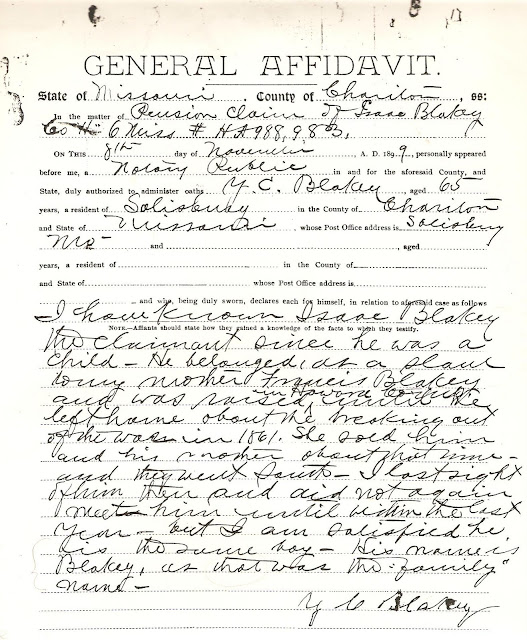 GENERAL AFFIDAVIT.
State of Missouri, County of Chariton, ss:
In the matter of Pension Claim of Isaac Blakey
Co H 6 Miss # H A 988,983,
ON THIS 8th day of November A. D. 1899, personally appeared
before me, a Notary Public in and for the aforesaid County, and
State, duly authorized to administer oaths Y. C. Blakey, aged 65
years, a resident of Salisbury in the County of Chariton
and State of Missouri, whose Post Office address is Salisbury
Mo and , aged
years, a resident of in the County of
and State of whose Post Office address is
and who, being duly sworn, declares each for himself, in relation to aforesaid case as follows
I have known Isaac Blakey
NOTE.—Affiants should state how they gained a knowledge of the facts to which they testify.
the claimant since he was a
child - He belonged, as a slave
to my mother Francis Blakey
in Howard County
and was raised, until he
left home about the breaking out
of the war in 1861. She sold him
and his mother about that time -
and they went South - I lost sight
of him then and did not again
meet him until within the last
year - but I am satisfied he
is the same boy - His name is
Blakey, as that was the "family"
name -
Y C Blakey